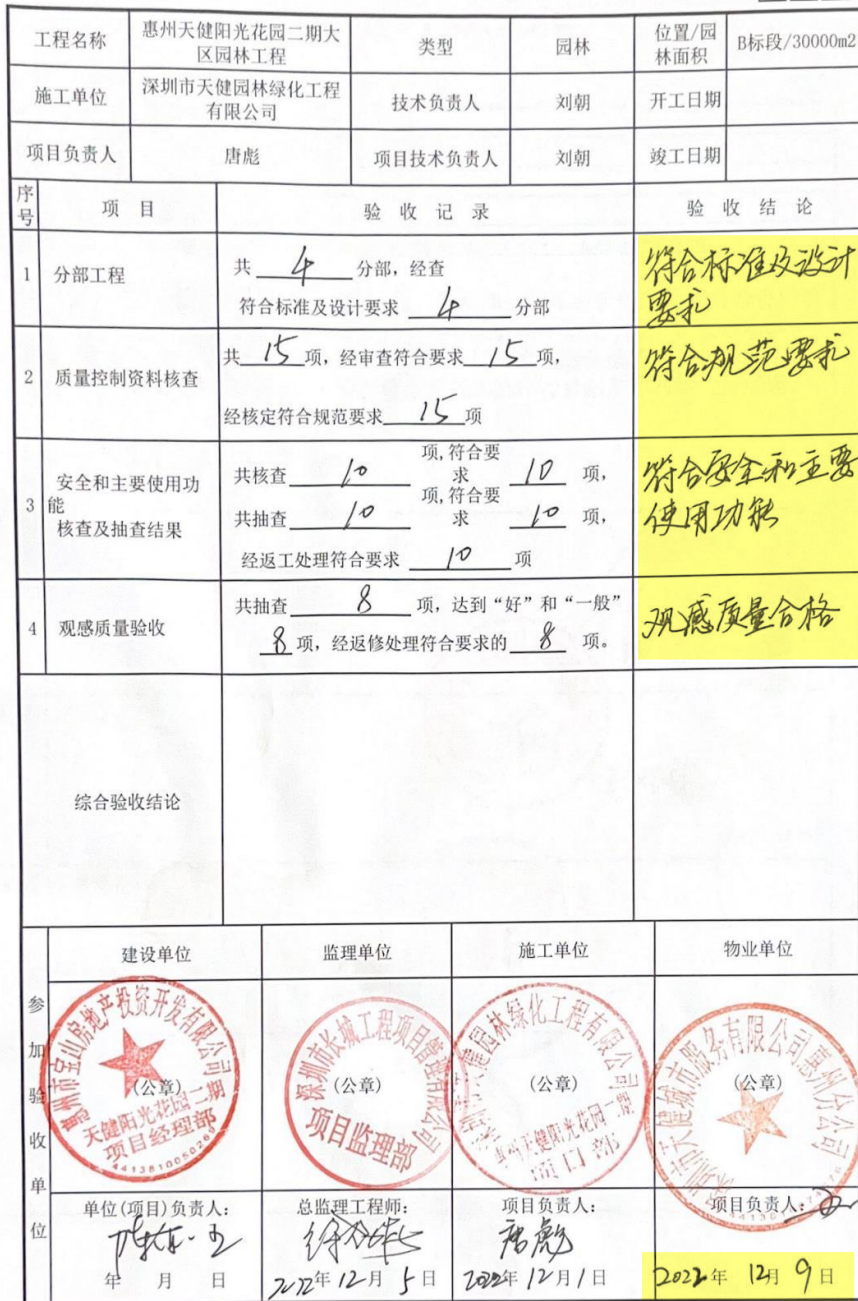 工程名称
惠州天健阳光花园二期大
区园林工程
类型
园林
位置/园
林面积
B标段/30000m2
施工单位
深圳市天健园林绿化工程
有限公司
技术负责人
刘朝
开工日期
项目负责人
唐彪
项目技术负责人
刘朝
竣工日期
序
号
项 目
验 收 记 录
验 收 结 论
1
分部工程
共 4 分部，经查
符合标准及设计要求 4 分部
符合标准及设计
要求
2
质量控制资料核查
共 15 项，经审查符合要求 15 项，
经核定符合规范要求 15 项
符合规范要求
3
安全和主要使用功
能
核查及抽查结果
共核查 10 项,符合要
求 10 项，
共抽查 10 项,符合要
求 10 项，
经返工处理符合要求 10 项
符合安全和主要
使用功能
4
观感质量验收
共抽查 8 项，达到“好”和“一般”
8 项，经返修处理符合要求的 8 项。
观感质量合格
综合验收结论
参
加
验
收
单
位
建设单位
监理单位
施工单位
物业单位
惠州市宝山房地产投资开发有限公司
(公章)
天健阳光花园二期
项目经理部
深圳市长城工程项目管理有限公司
(公章)
项目监理部
深圳市天健园林绿化工程有限公司
(公章)
惠州天健阳光花园二期
项目部
深圳市天健城市服务有限公司惠州分公司
(公章)
单位(项目)负责人：
年 月 日
总监理工程师：
2022年12月5日
项目负责人：
唐彪
2022年12月1日
项目负责人：
2022年 12月 9日